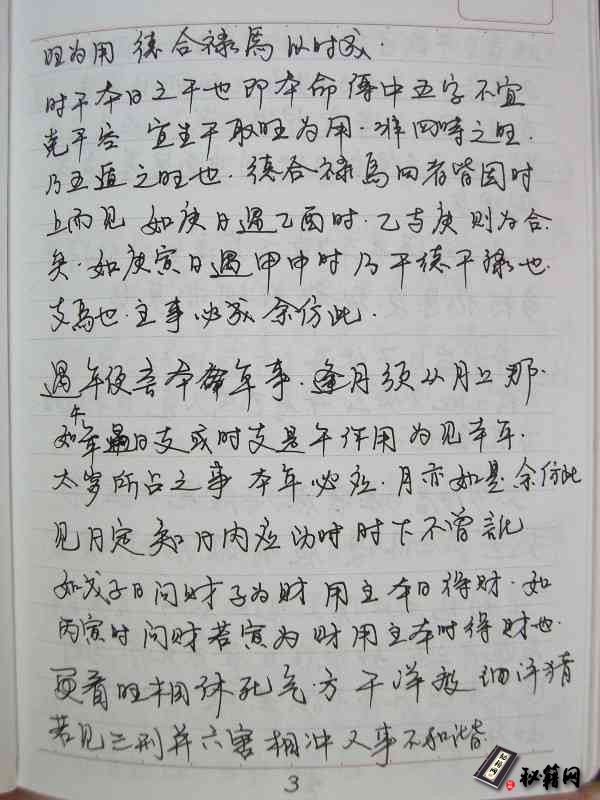 旺为用 德合禄馬 以时成.
时干本日之干也 即本命傳中五字不宜
克干吉 宜生干取旺为用.非四時之旺.
乃五遁之旺也.德合禄馬四者皆因时
上而见 如庚日遇乙酉时.乙与庚则为合
矣.如庚寅日遇甲申时乃干德干禄也.
支馬也.主事必成余仿此.
遇年便言本年事.逢月须从月上那.
如午年遇日支或时支是午作用为见本年.
太岁所占之事本年必应.月亦如是余仿此
见日定知日内应 为时时下不曾訛
如戊子日问财子为财用主本日得财.如
丙寅时问财若寅为财用主本时得财也.
更看旺相休死气.方干洋 细详猜
若见三刑并六害相冲又事不和谐.
3
秘籍网
秘籍网